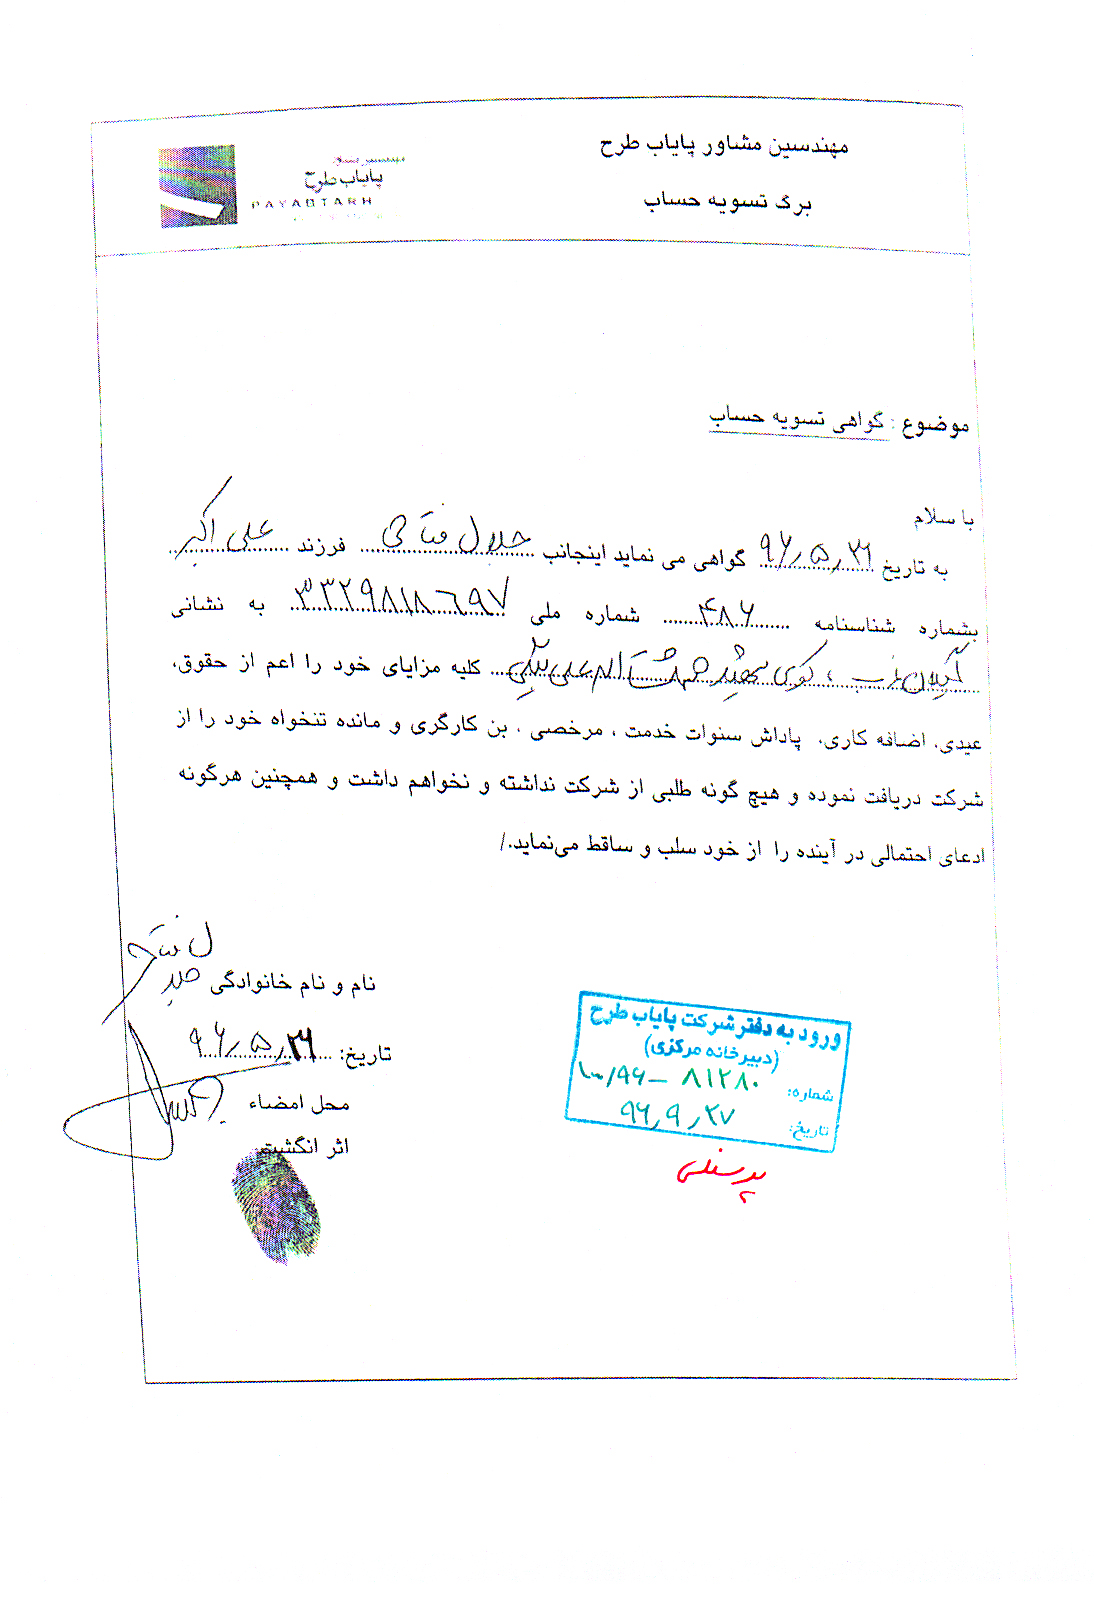 مهندسین مشاور پایاب طرح
برگ تسویه حساب
پایاب طرح
PAYABTARH
موضوع : گواهی تسویه حساب
با سلام
به تاریخ ۹۶/۵/۳۱ گواهی می نماید اینجانب جلال فتاحی فرزند علی اکبر
بشماره شناسنامه ۴۸۶ شماره ملی ۳۳۲۹۸۱۸۶۹۷ به نشانی
گیلان غرب ، کوی شهید کلیه مزایای خود را اعم از حقوق،
عیدی، اضافه کاری، پاداش سنوات خدمت ، مرخصی ، بن کارگری و مانده تنخواه خود را از
شرکت دریافت نموده و هیچ گونه طلبی از شرکت نداشته و نخواهم داشت و همچنین هرگونه
ادعای احتمالی در آینده را از خود سلب و ساقط می‌نماید./
نام و نام خانوادگی جلال فتاحی
تاریخ: ۹۶/۵/۳۱
محل امضاء
اثر انگشت
ورود به دفتر شرکت پایاب طرح
(دبیرخانه مرکزی)
شماره: ۱۰۰/۹۶ – ۸۱۲۸۰
تاریخ: ۹۶/۹/۲۷
پرسنلی